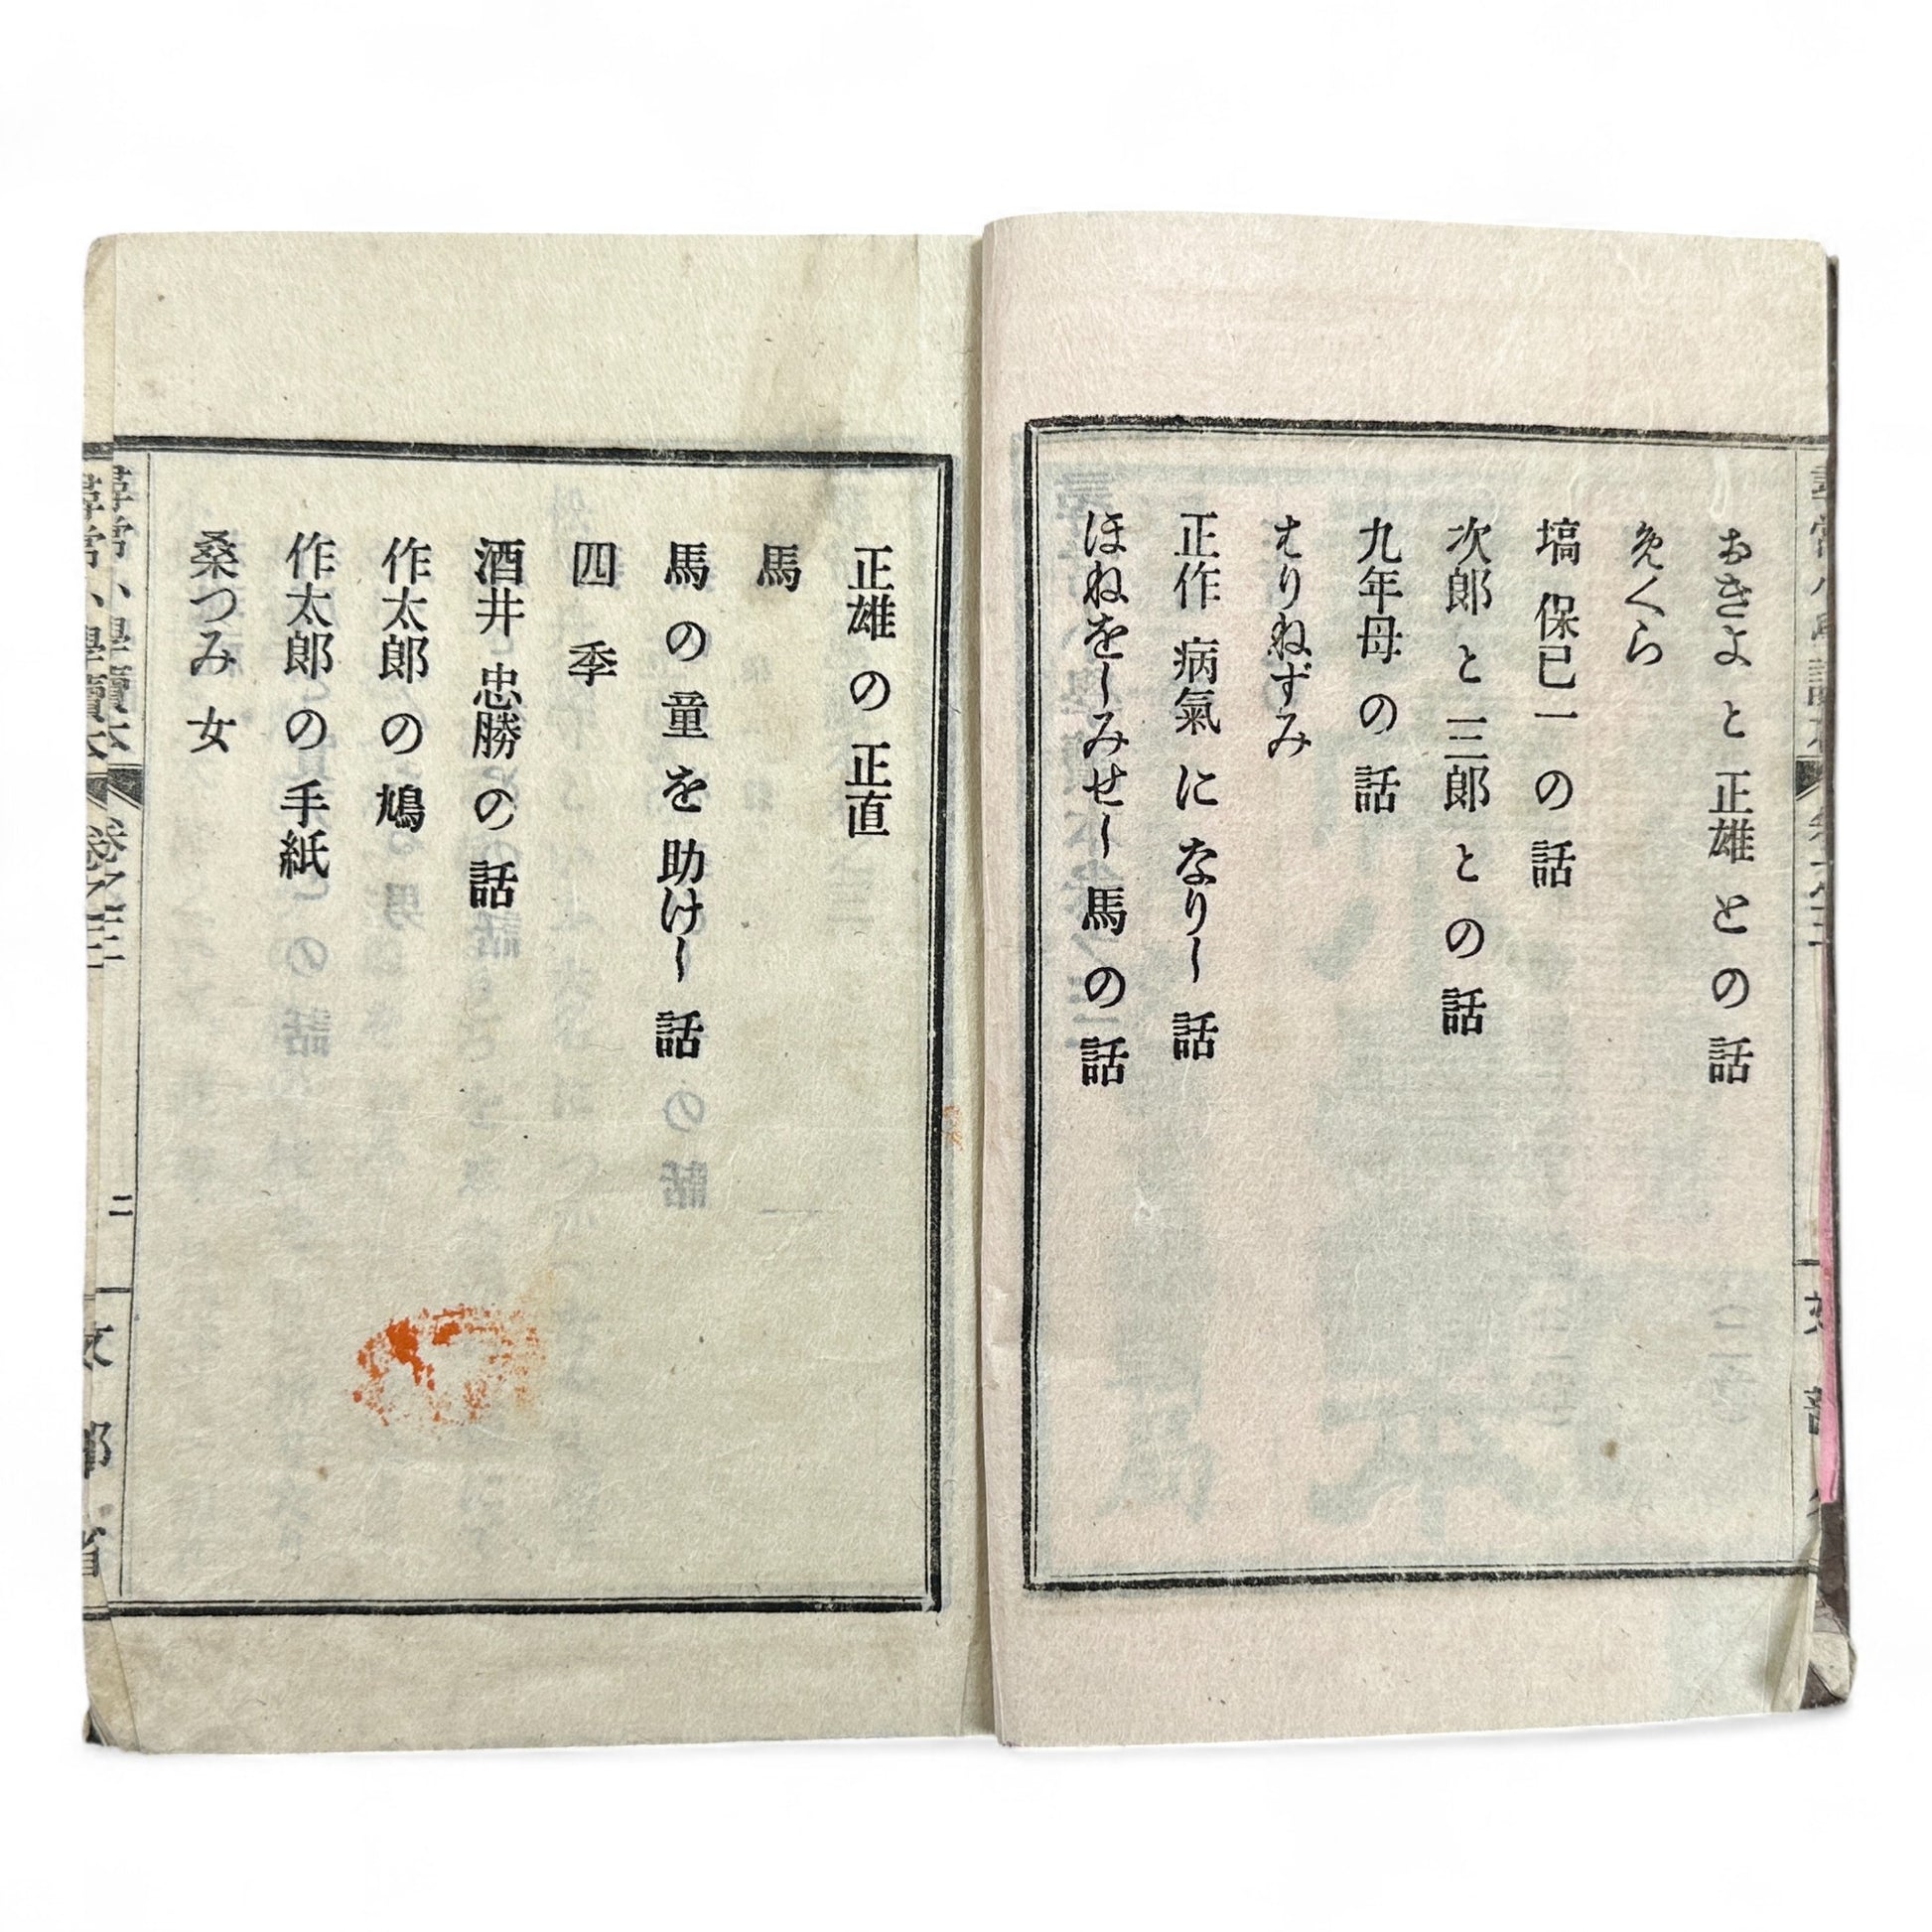 おきよと正雄との話
めくら
塙保己一の話
次郎と三郎との話
九年母の話
はりねずみ
正作病氣になりし話
ほねをしみせし馬の話
正雄の正直
馬
馬の童を助けし話
四季
酒井忠勝の話
作太郎の鳩
作太郎の手紙
桑つみ女
尋常小學讀本 卷之三 二 文部省